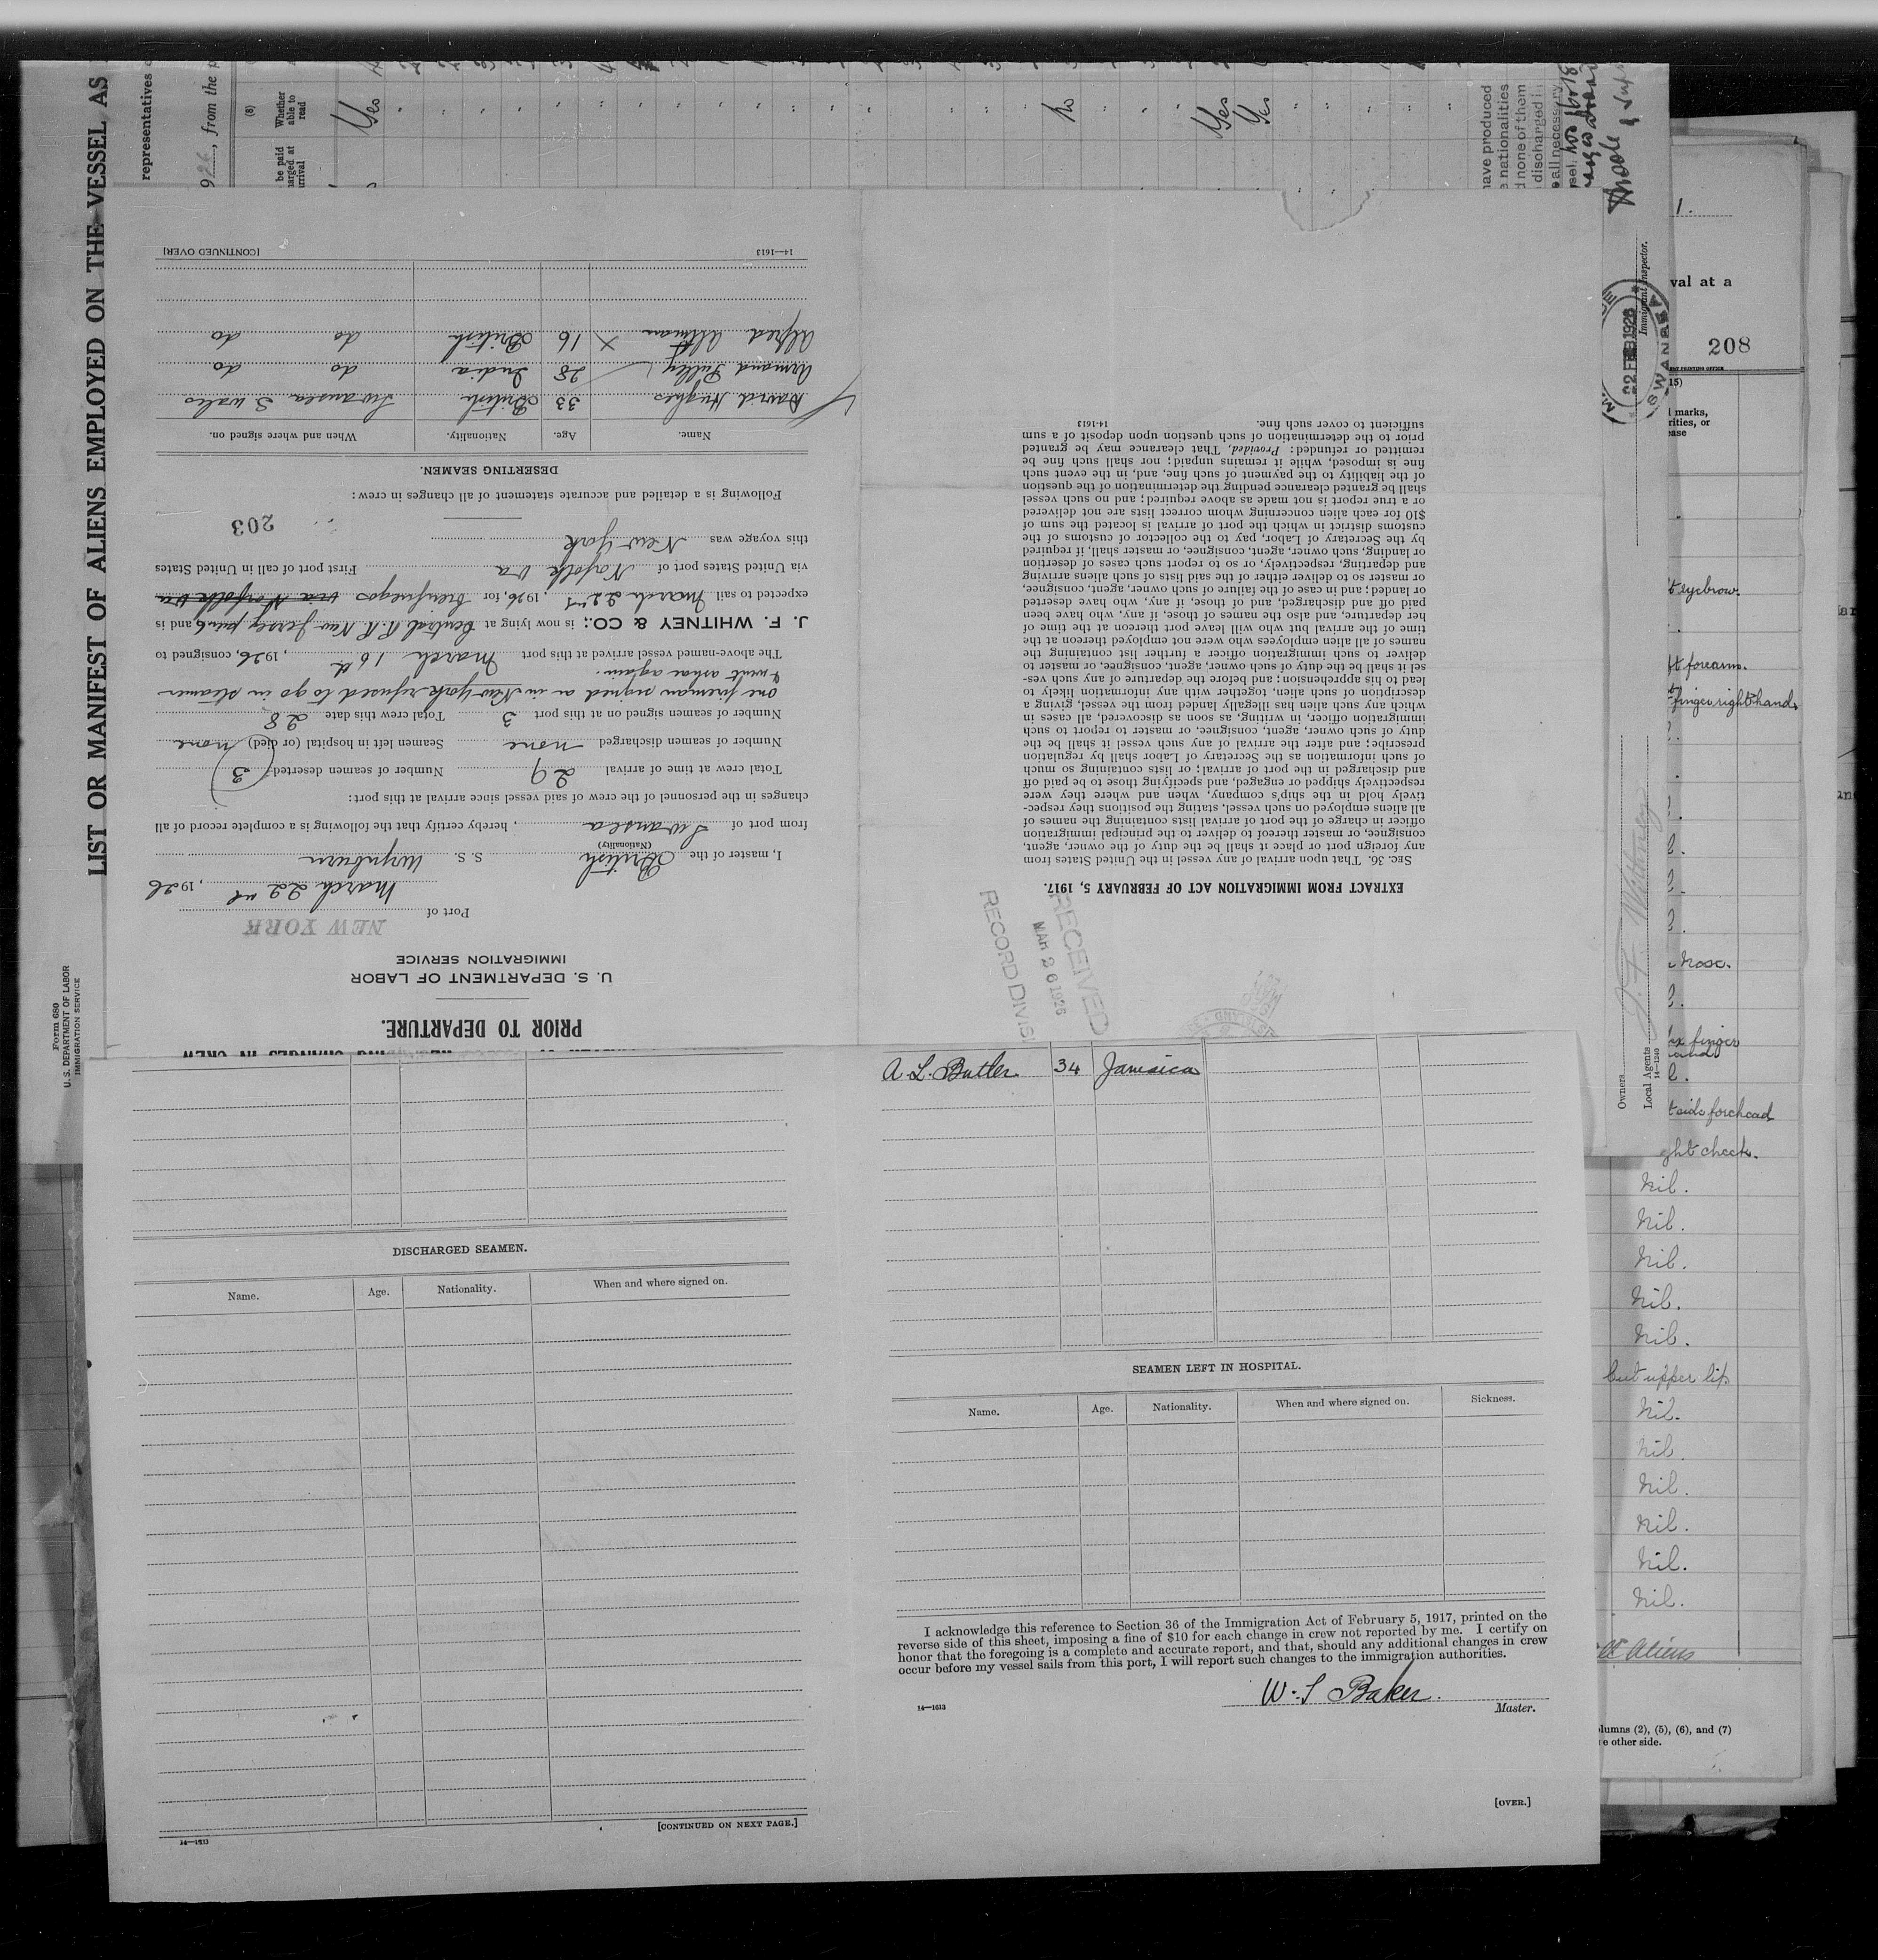 LIST OR MANIFEST OF ALIENS EMPLOYED ON THE VESSEL AS
Form 680
U.S. DEPARTMENT OF LABOR
IMMIGRATION SERVICE
representatives
926, from the
(8)
Whether
able to
read
be paid
arrival
Yes
No
Yes
Yes
have produced
nationalities
none of them
discharged
all necessary
Immigrant Inspector.
22 FEB 1926
SWANSEA
Owners
Local Agents
14—1240
J. F. Whitney
1.
val at a
208
15)
marks,
rities, or
ase
eyebrow.
forearm.
finger right hand.
Nose.
finger
side forehead
ght cheek.
Nil.
Nil.
Nil.
Nil.
Nil.
Cut upper lip
Nil.
Nil.
Nil.
Nil.
Nil.
Nil.
Aliens
lumns (2), (5), (6), and (7)
e other side.
PRIOR TO DEPARTURE.
U. S. DEPARTMENT OF LABOR
IMMIGRATION SERVICE
NEW YORK
Port of
March 22nd, 1926
I, master of the British S. S. Wynburn
(Nationality)
from port of Swansea, hereby certify that the following is a complete record of all
changes in the personnel of the crew of said vessel since arrival at this port:
Total crew at time of arrival 29 Number of seamen deserted 3
Number of seamen discharged none Seamen left in hospital (or died) none
Number of seamen signed on at this port 3 Total crew this date 28
one fireman signed on in New York refused to go in steamer
& went ashore again.
The above-named vessel arrived at this port March 16th, 1926, consigned to
J. F. WHITNEY & CO.; is now lying at Central R. R. New Jersey pier 6, and is
expected to sail March 22nd, 1926, for Cienfuegos via Norfolk Va
via United States port of Norfolk Va First port of call in United States
this voyage was New York
203
Following is a detailed and accurate statement of all changes in crew:
DESERTING SEAMEN.
Name. Age. Nationality. When and where signed on.
David Hughes 33 British Swansea S wales
Armand Pulley 28 India do do
Alfred Altman X 16 British do do
14—1613 [CONTINUED OVER]
RECEIVED
MAR 26 1926
RECORD DIVIS
EXTRACT FROM IMMIGRATION ACT OF FEBRUARY 5, 1917.
SEC. 36. That upon arrival of any vessel in the United States from
any foreign port or place it shall be the duty of the owner, agent,
consignee, or master thereof to deliver to the principal immigration
officer in charge of the port of arrival lists containing the names of
all aliens employed on such vessel, stating the positions they respec-
tively hold in the ship's company, when and where they were
respectively shipped or engaged, and specifying those to be paid off
and discharged in the port of arrival; or lists containing so much
of such information as the Secretary of Labor shall by regulation
prescribe; and after the arrival of any such vessel it shall be the
duty of such owner, agent, consignee, or master to report to such
immigration officer, in writing, as soon as discovered, all cases in
which any such alien has illegally landed from the vessel, giving a
description of such alien, together with any information likely to
lead to his apprehension; and before the departure of any such ves-
sel it shall be the duty of such owner, agent, consignee, or master to
deliver to such immigration officer a further list containing the
names of all alien employees who were not employed thereon at the
time of the arrival but who will leave port thereon at the time of
her departure, and also the names of those, if any, who have been
paid off and discharged, and of those, if any, who have deserted
or landed; and in case of the failure of such owner, agent, consignee,
or master so to deliver either of the said lists of such aliens arriving
and departing, respectively, or so to report such cases of desertion
or landing, such owner, agent, consignee, or master shall, if required
by the Secretary of Labor, pay to the collector of customs of the
customs district in which the port of arrival is located the sum of
$10 for each alien concerning whom correct lists are not delivered
or a true report is not made as above required; and no such vessel
shall be granted clearance pending the determination of the question
of the liability to the payment of such fine, and, in the event such
fine is imposed, while it remains unpaid; nor shall such fine be
remitted or refunded: Provided, That clearance may be granted
prior to the determination of such question upon deposit of a sum
sufficient to cover such fine.
14-1613
DISCHARGED SEAMEN.
Name. Age. Nationality. When and where signed on.
14—1613
[CONTINUED ON NEXT PAGE.]
A. L. Butler 34 Jamaica
SEAMEN LEFT IN HOSPITAL.
Name. Age. Nationality. When and where signed on. Sickness.
I acknowledge this reference to Section 36 of the Immigration Act of February 5, 1917, printed on the
reverse side of this sheet, imposing a fine of $10 for each change in crew not reported by me. I certify on
honor that the foregoing is a complete and accurate report, and that, should any additional changes in crew
occur before my vessel sails from this port, I will report such changes to the immigration authorities.
W. S Baker.
14—1613 Master.
[OVER.]